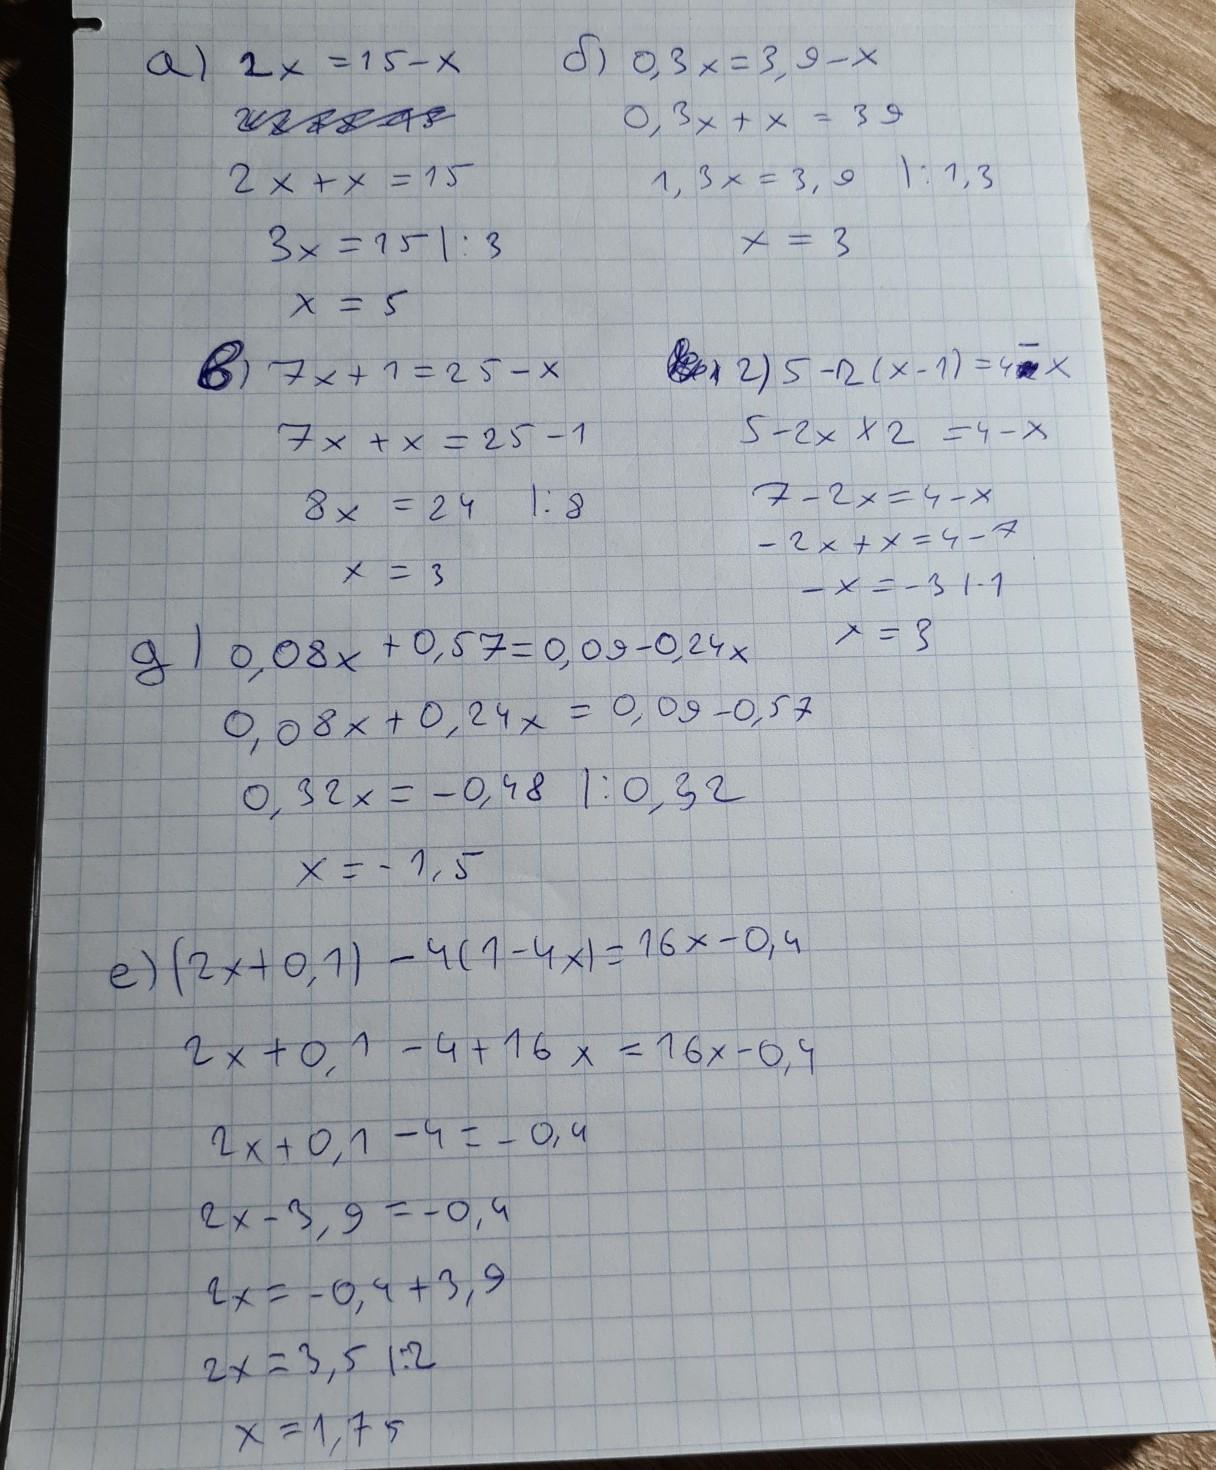 а) 2x = 15 - x
2x + x = 15
3x = 15 |: 3
x = 5
б) 0,3x = 3,9 - x
0,3x + x = 39
1,3x = 3,9 |: 1,3
x = 3
в) 7x + 1 = 25 - x
7x + x = 25 - 1
8x = 24 |: 8
x = 3
г) 5 - 2(x - 1) = 4 - x
5 - 2x + 2 = 4 - x
7 - 2x = 4 - x
- 2x + x = 4 - 7
- x = - 3 |·1
x = 3
д) 0,08x + 0,57 = 0,09 - 0,24x
0,08x + 0,24x = 0,09 - 0,57
0,32x = - 0,48 |: 0,32
x = - 1,5
е) (2x + 0,1) - 4(1 - 4x) = 16x - 0,4
2x + 0,1 - 4 + 16x = 16x - 0,4
2x + 0,1 - 4 = - 0,4
2x - 3,9 = - 0,4
2x = - 0,4 + 3,9
2x = 3,5 |: 2
x = 1,75